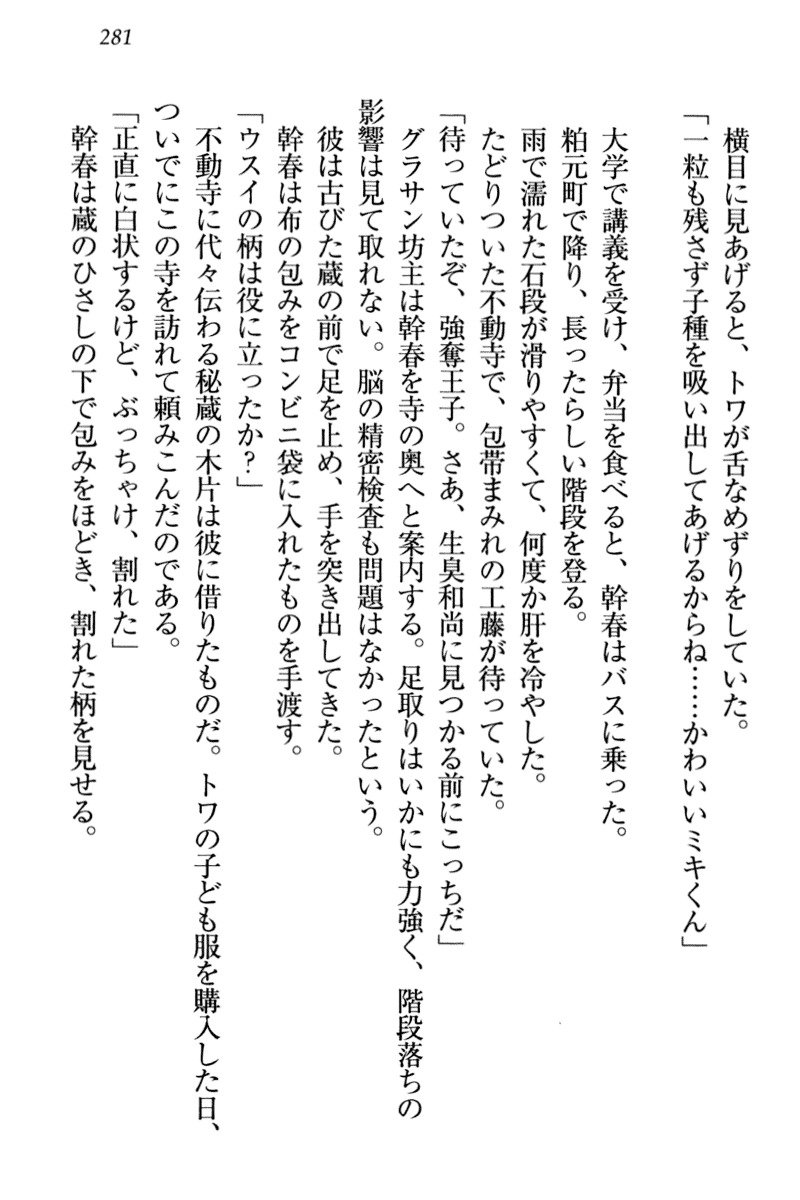 281
横目に見あげると、トワが舌なめずりをしていた。
「一粒も残さず子種を吸い出してあげるからね……かわいいミキくん」
大学で講義を受け、弁当を食べると、幹春はバスに乗った。
粕元町で降り、長ったらしい階段を登る。
雨で濡れた石段が滑りやすくて、何度か肝を冷やした。
たどりついた不動寺で、包帯まみれの工藤が待っていた。
「待っていたぞ、強奪王子。さあ、生臭和尚に見つかる前にこっちだ」
グラサン坊主は幹春を寺の奥へと案内する。足取りはいかにも力強く、階段落ちの
影響は見て取れない。脳の精密検査も問題はなかったという。
彼は古びた蔵の前で足を止め、手を突き出してきた。
幹春は布の包みをコンビニ袋に入れたものを手渡す。
「ウスイの柄は役に立ったか？」
不動寺に代々伝わる秘蔵の木片は彼に借りたものだ。トワの子ども服を購入した日、
ついでにこの寺を訪れて頼みこんだのである。
「正直に白状するけど、ぶっちゃけ、割れた」
幹春は蔵のひさしの下で包みをほどき、割れた柄を見せる。